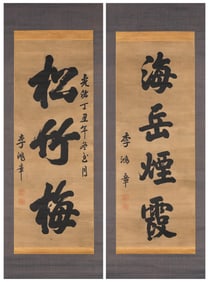 海岳煙霞
李鴻章
光緒丁丑年冬至月
松竹梅
李鴻章